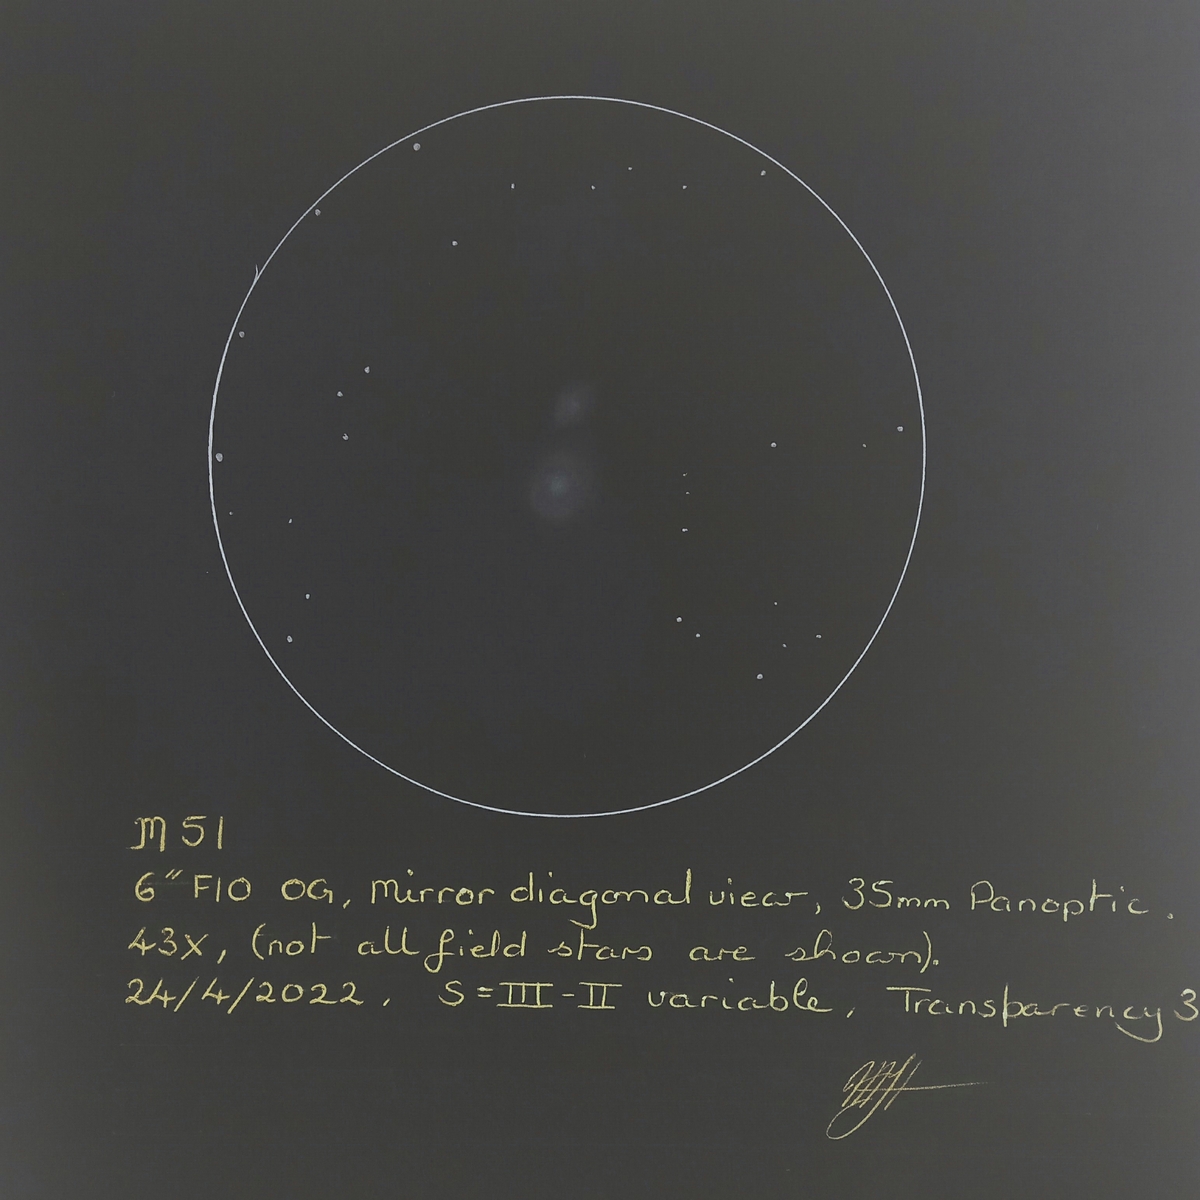 M 51
6" F10 OG, Mirror diagonal view, 35mm Panoptic.
43x, (not all field stars are shown).
24/4/2022. S=III-II variable, Transparency 3